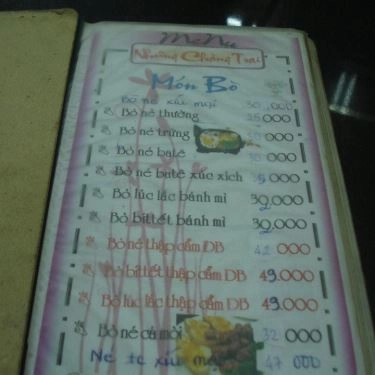 MeNu
Những Chàng Trai
Món Bò
Bò né xíu mại 30,000
Bò né thường 25 000
Bò né trứng 000
Bò né batê 30 000
Bò né batê xúc xích 35 000
Bò lúc lắc bánh mì 39,000
Bò bittết bánh mì 39,000
Bò né thập cẩm ĐB 42 000
Bò bittết thập cẩm ĐB 49.000
Bò lúc lắc thập cẩm ĐB 49.000
Bò né cá mòi 32 000
Né tc xíu mại 47 000